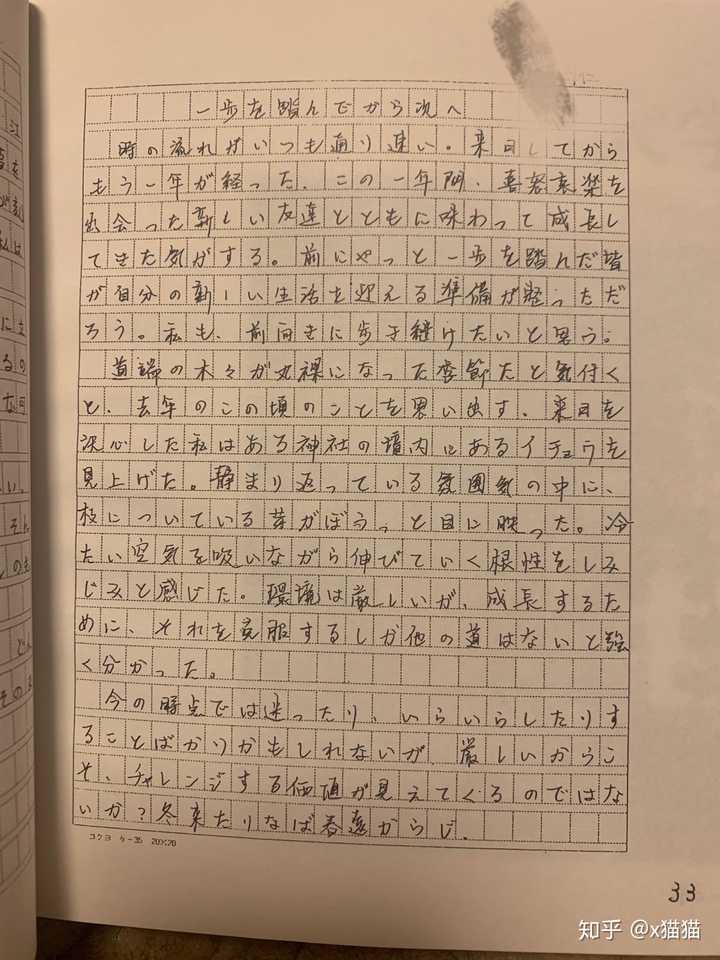 一歩を踏んでから次へ
時の流れがいつも通り速い。来日してから
もう一年が経った。この一年間、喜怒哀楽を
出会った新しい友達とともに味わって成長し
てきた気がする。前にやっと一歩を踏んだ皆
が自分の新しい生活を迎える準備が整っただ
ろう。私も、前向きに歩き継けたいと思う。
道端の木々が丸裸になった季節だと気付く
と、去年のこの頃のことを思い出す。来日を
決心した私はある神社の境内にあるイチョウを
見上げた。静まり返っている雰囲気の中に、
枝についている芽がぼうっと目に映った。冷
たい空気を吸いながら伸びていく根性をしみ
じみと感じた。環境は厳しいが、成長するた
めに、それを克服するしか他の道はないと強
く分かった。
今の時点では迷ったり、いらいらしたりす
ることばかりかもしれないが、厳しいからこ
そ、チャレンジする価値が見えてくるのではな
いか?冬来たりなば春遠からじ。
コクヨ ケ-35 20×20
33
知乎 @x猫猫